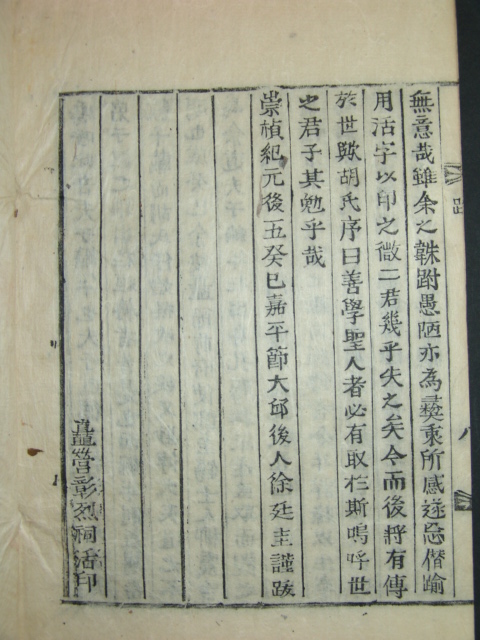 無意哉雖余之韎跗愚陋亦爲彛秉所感遂忘僭踰
用活字以印之微二君幾乎失之矣今而後將有傳
於世歟胡氏序曰善學聖人者必有取於斯嗚呼世
之君子其勉乎哉
崇禎紀元後五癸巳嘉平節大邱後人徐廷圭謹跋
矗營彰烈祠活印
跋
八